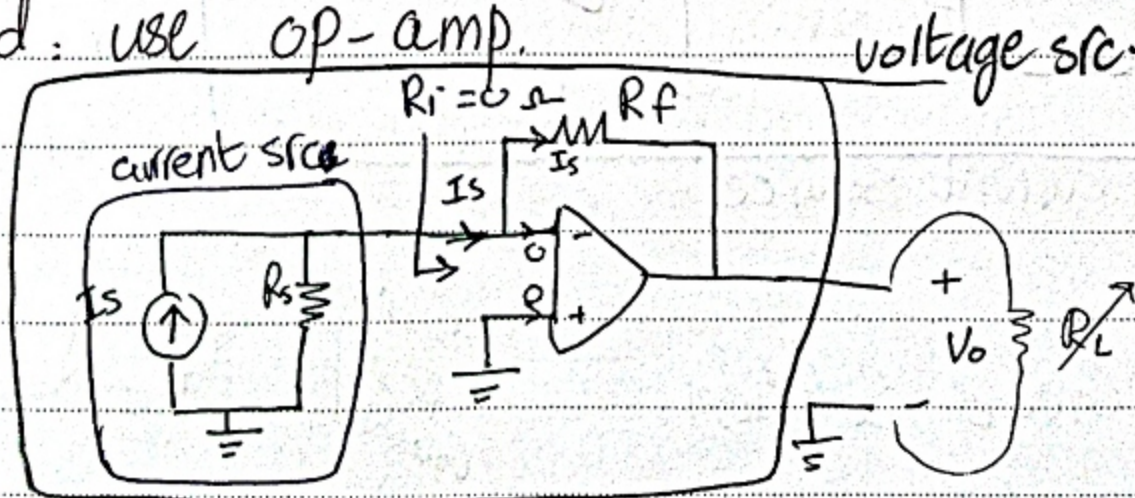 d: use op-amp.
voltage src.
Ri = 0 Ω
Rf
current src
Is
Is
Is
Rs
0
0
-
+
+
Vo
-
RL